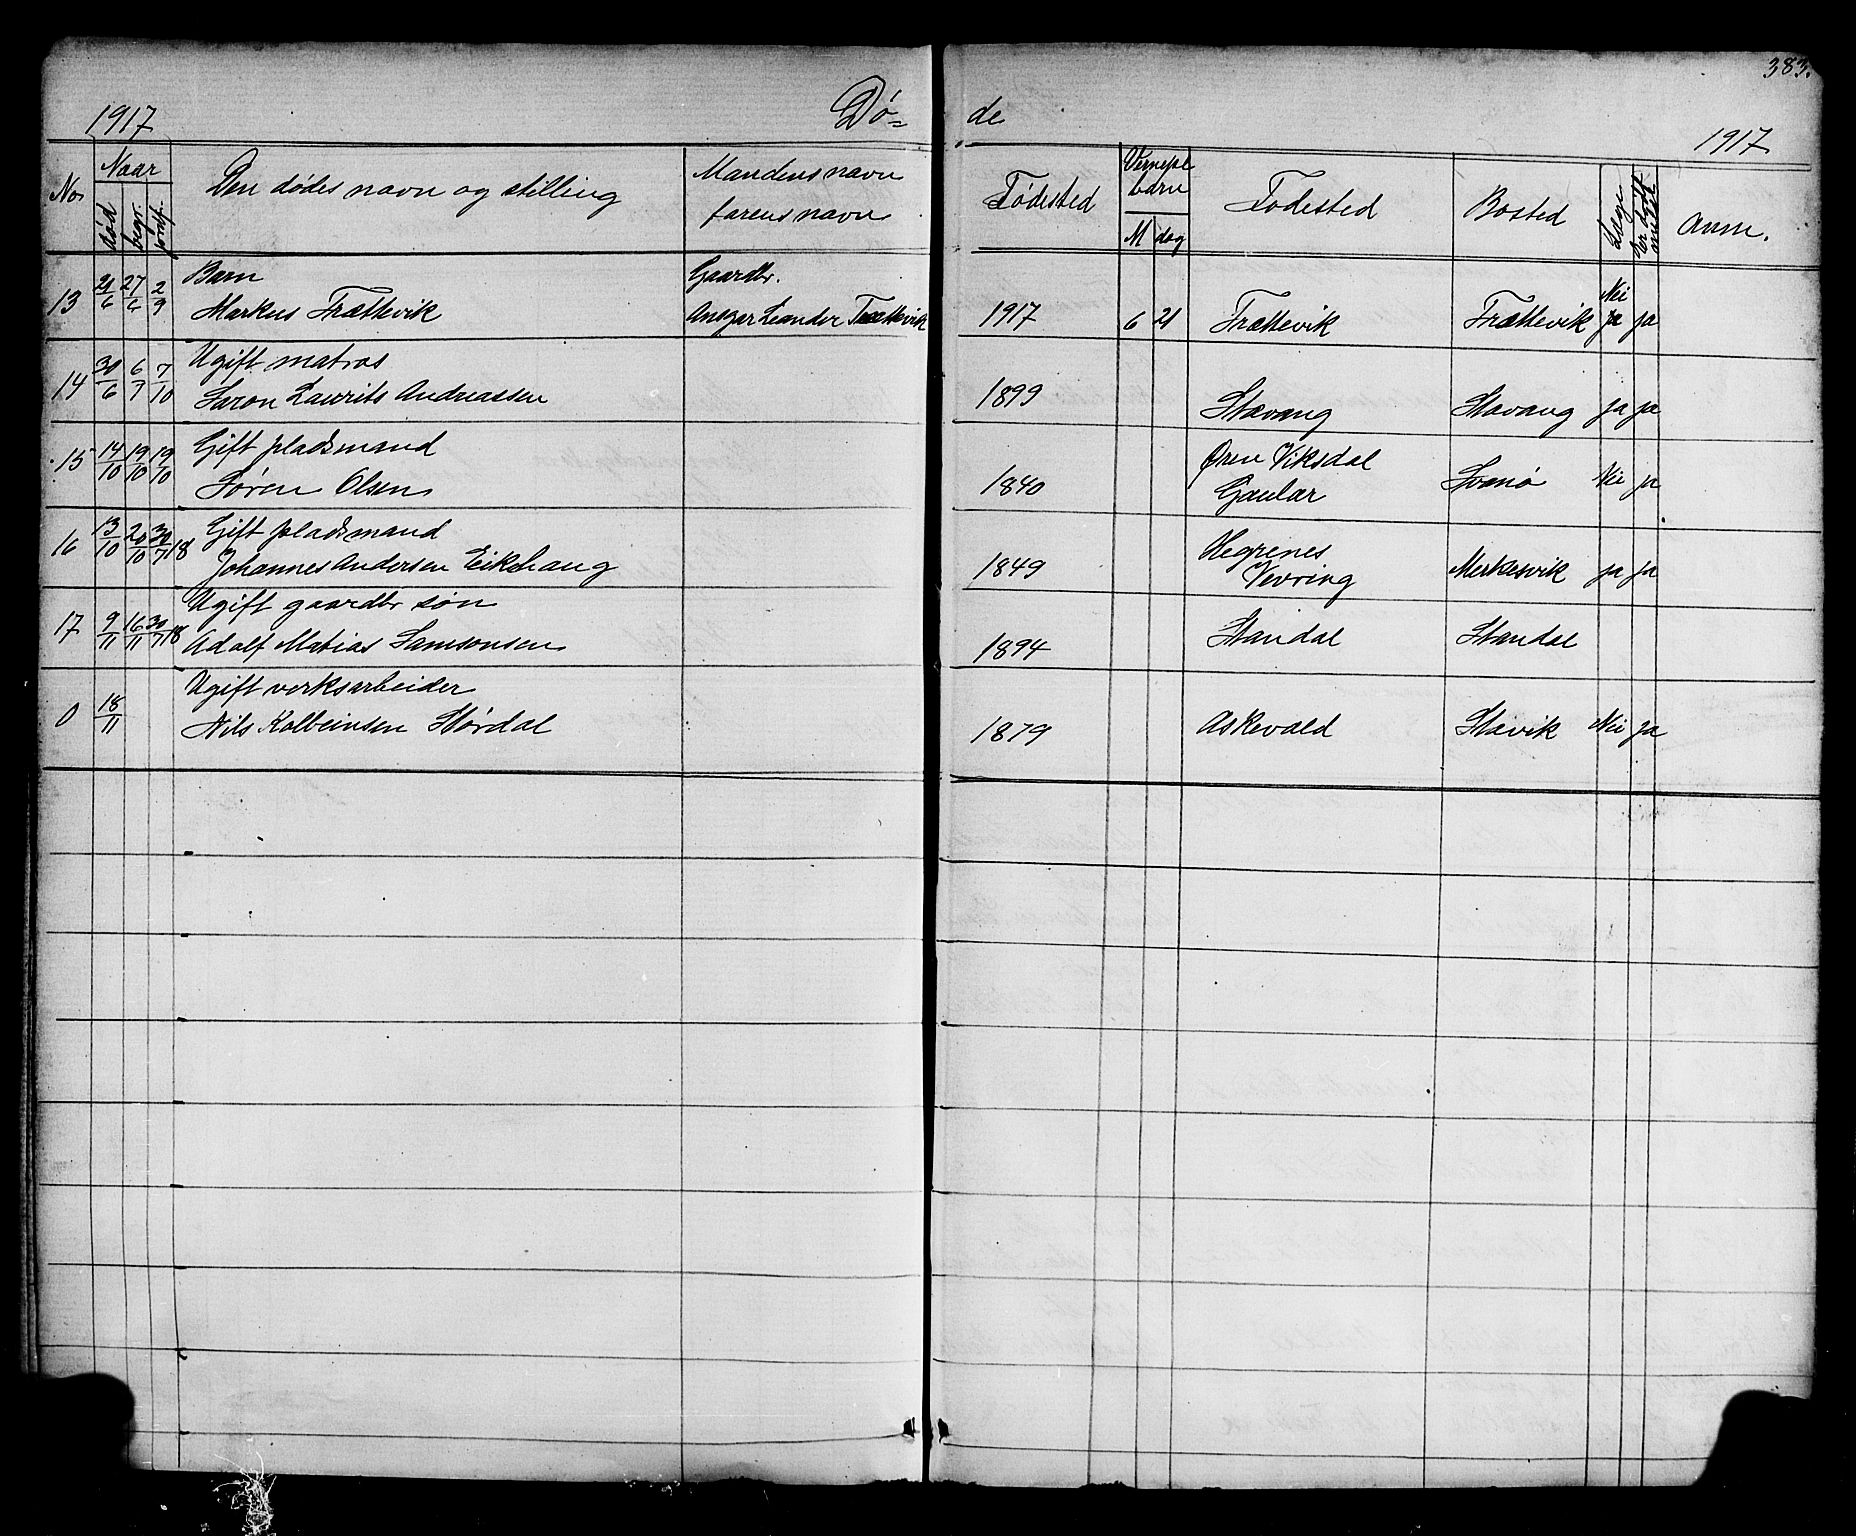 383.
1917 Dø= de 1917
No. Naar Den dødes navn og stilling Mandens navn Fødested Vernepl. Fødested Bosted Læge Anm.
død begr. jordf. farens navn barn
M dag
13 21/6 27/6 2/9 Barn Gaardbr. Nei
Markus Trættevik Ansgar Leander Trættevik 1917 6 21 Trættevik Trættevik ja ja
14 30/6 6/7 7/10 Ugift matros
Saron Laurits Andreassen 1899 Stavang Stavang ja ja
15 14/10 19/10 19/10 Gift pladsmand Øren Viksdal
Søren Olsen 1840 Gaular Svanø Nei ja
16 13/10 20/10 30/7 18 Gift pladsmand Hegrenes
Johannes Andersen Eikehaug 1849 Vevring Merkesvik ja ja
17 9/11 16/11 30/7 18 Ugift gaardbr søn
Adolf Matias Samsonsen 1894 Standal Standal
0 18/11 Ugift verksarbeider
Nils Kolbeinsen Størdal 1879 Askevold Stavik Nei ja